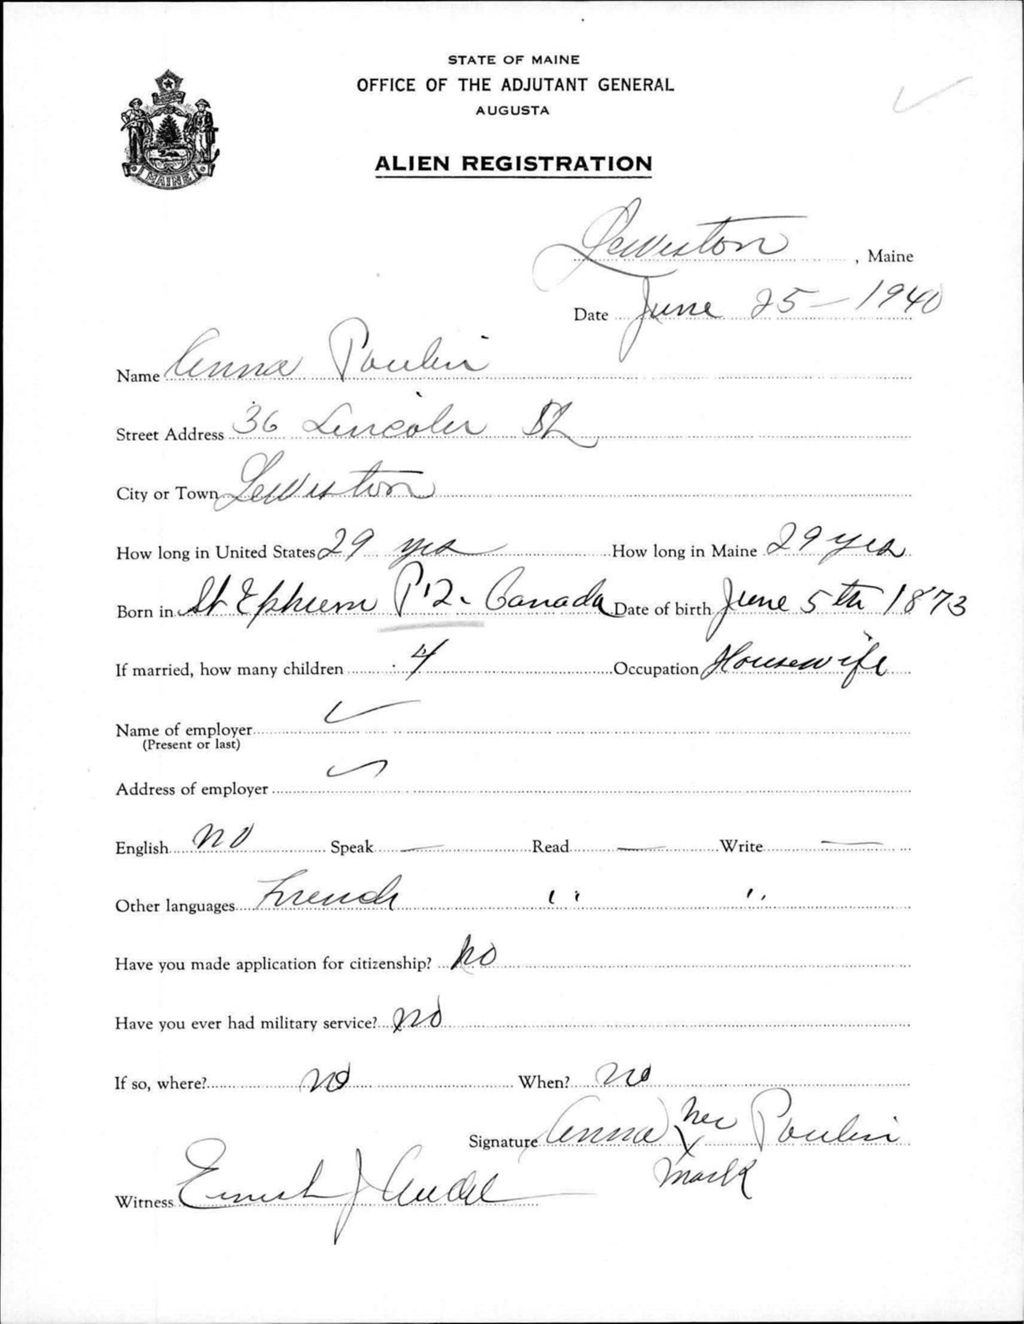 STATE OF MAINE
OFFICE OF THE ADJUTANT GENERAL
AUGUSTA
ALIEN REGISTRATION
MAINE
Lewiston, Maine
Date June 25 - 1940
Name Anna Poulin
Street Address 36 Lincoln St
City or Town Lewiston
How long in United States 29 yrs How long in Maine 29 yrs
Born in St Ephrem P.Q. Canada Date of birth June 5th 1873
If married, how many children 4 Occupation Housewife
Name of employer
(Present or last)
Address of employer
English No Speak — Read — Write —
Other languages French " "
Have you made application for citizenship? No
Have you ever had military service? No
If so, where? No When? No
Signature Anna her x mark Poulin
Witness Ernest J